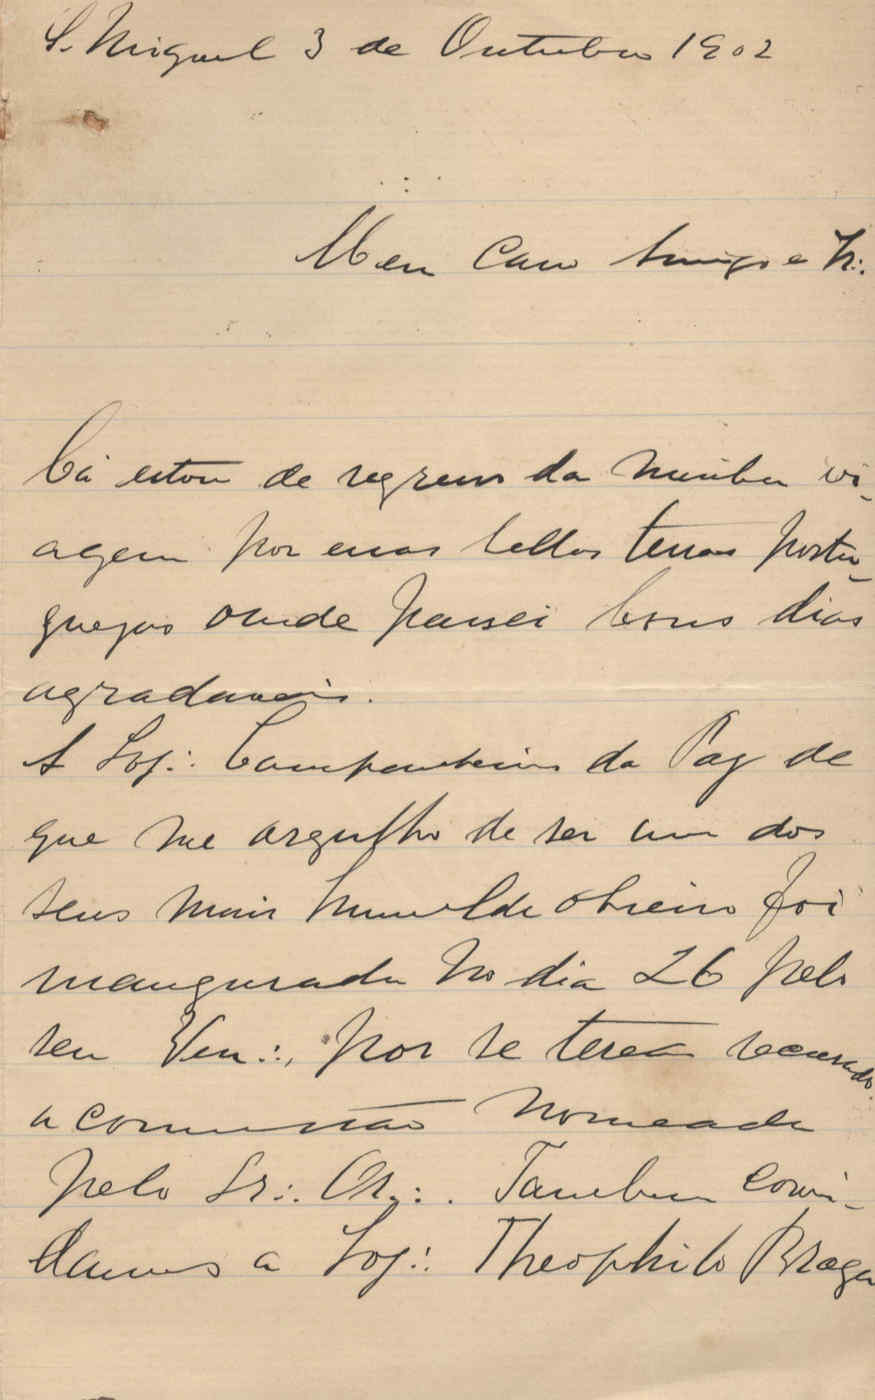 S. Miguel 3 de Outubro 1902
∴
Meu Caro Amigo e Ir∴
Cá estou de regresso da minha vi-
agem por essas bellas terras portu-
guezas onde passei bons dias
agradaveis.
A Loj∴ Companheiros da Paz de
que me orgulho de ser um dos
seus mais humilde obreiro foi
inaugurada no dia 26 pelo
seu Ven∴, por se terem recusado
a comissão nomeada
pelo Gr∴ Or∴. Tambem convi-
damos a Loj∴ Theophilo Braga